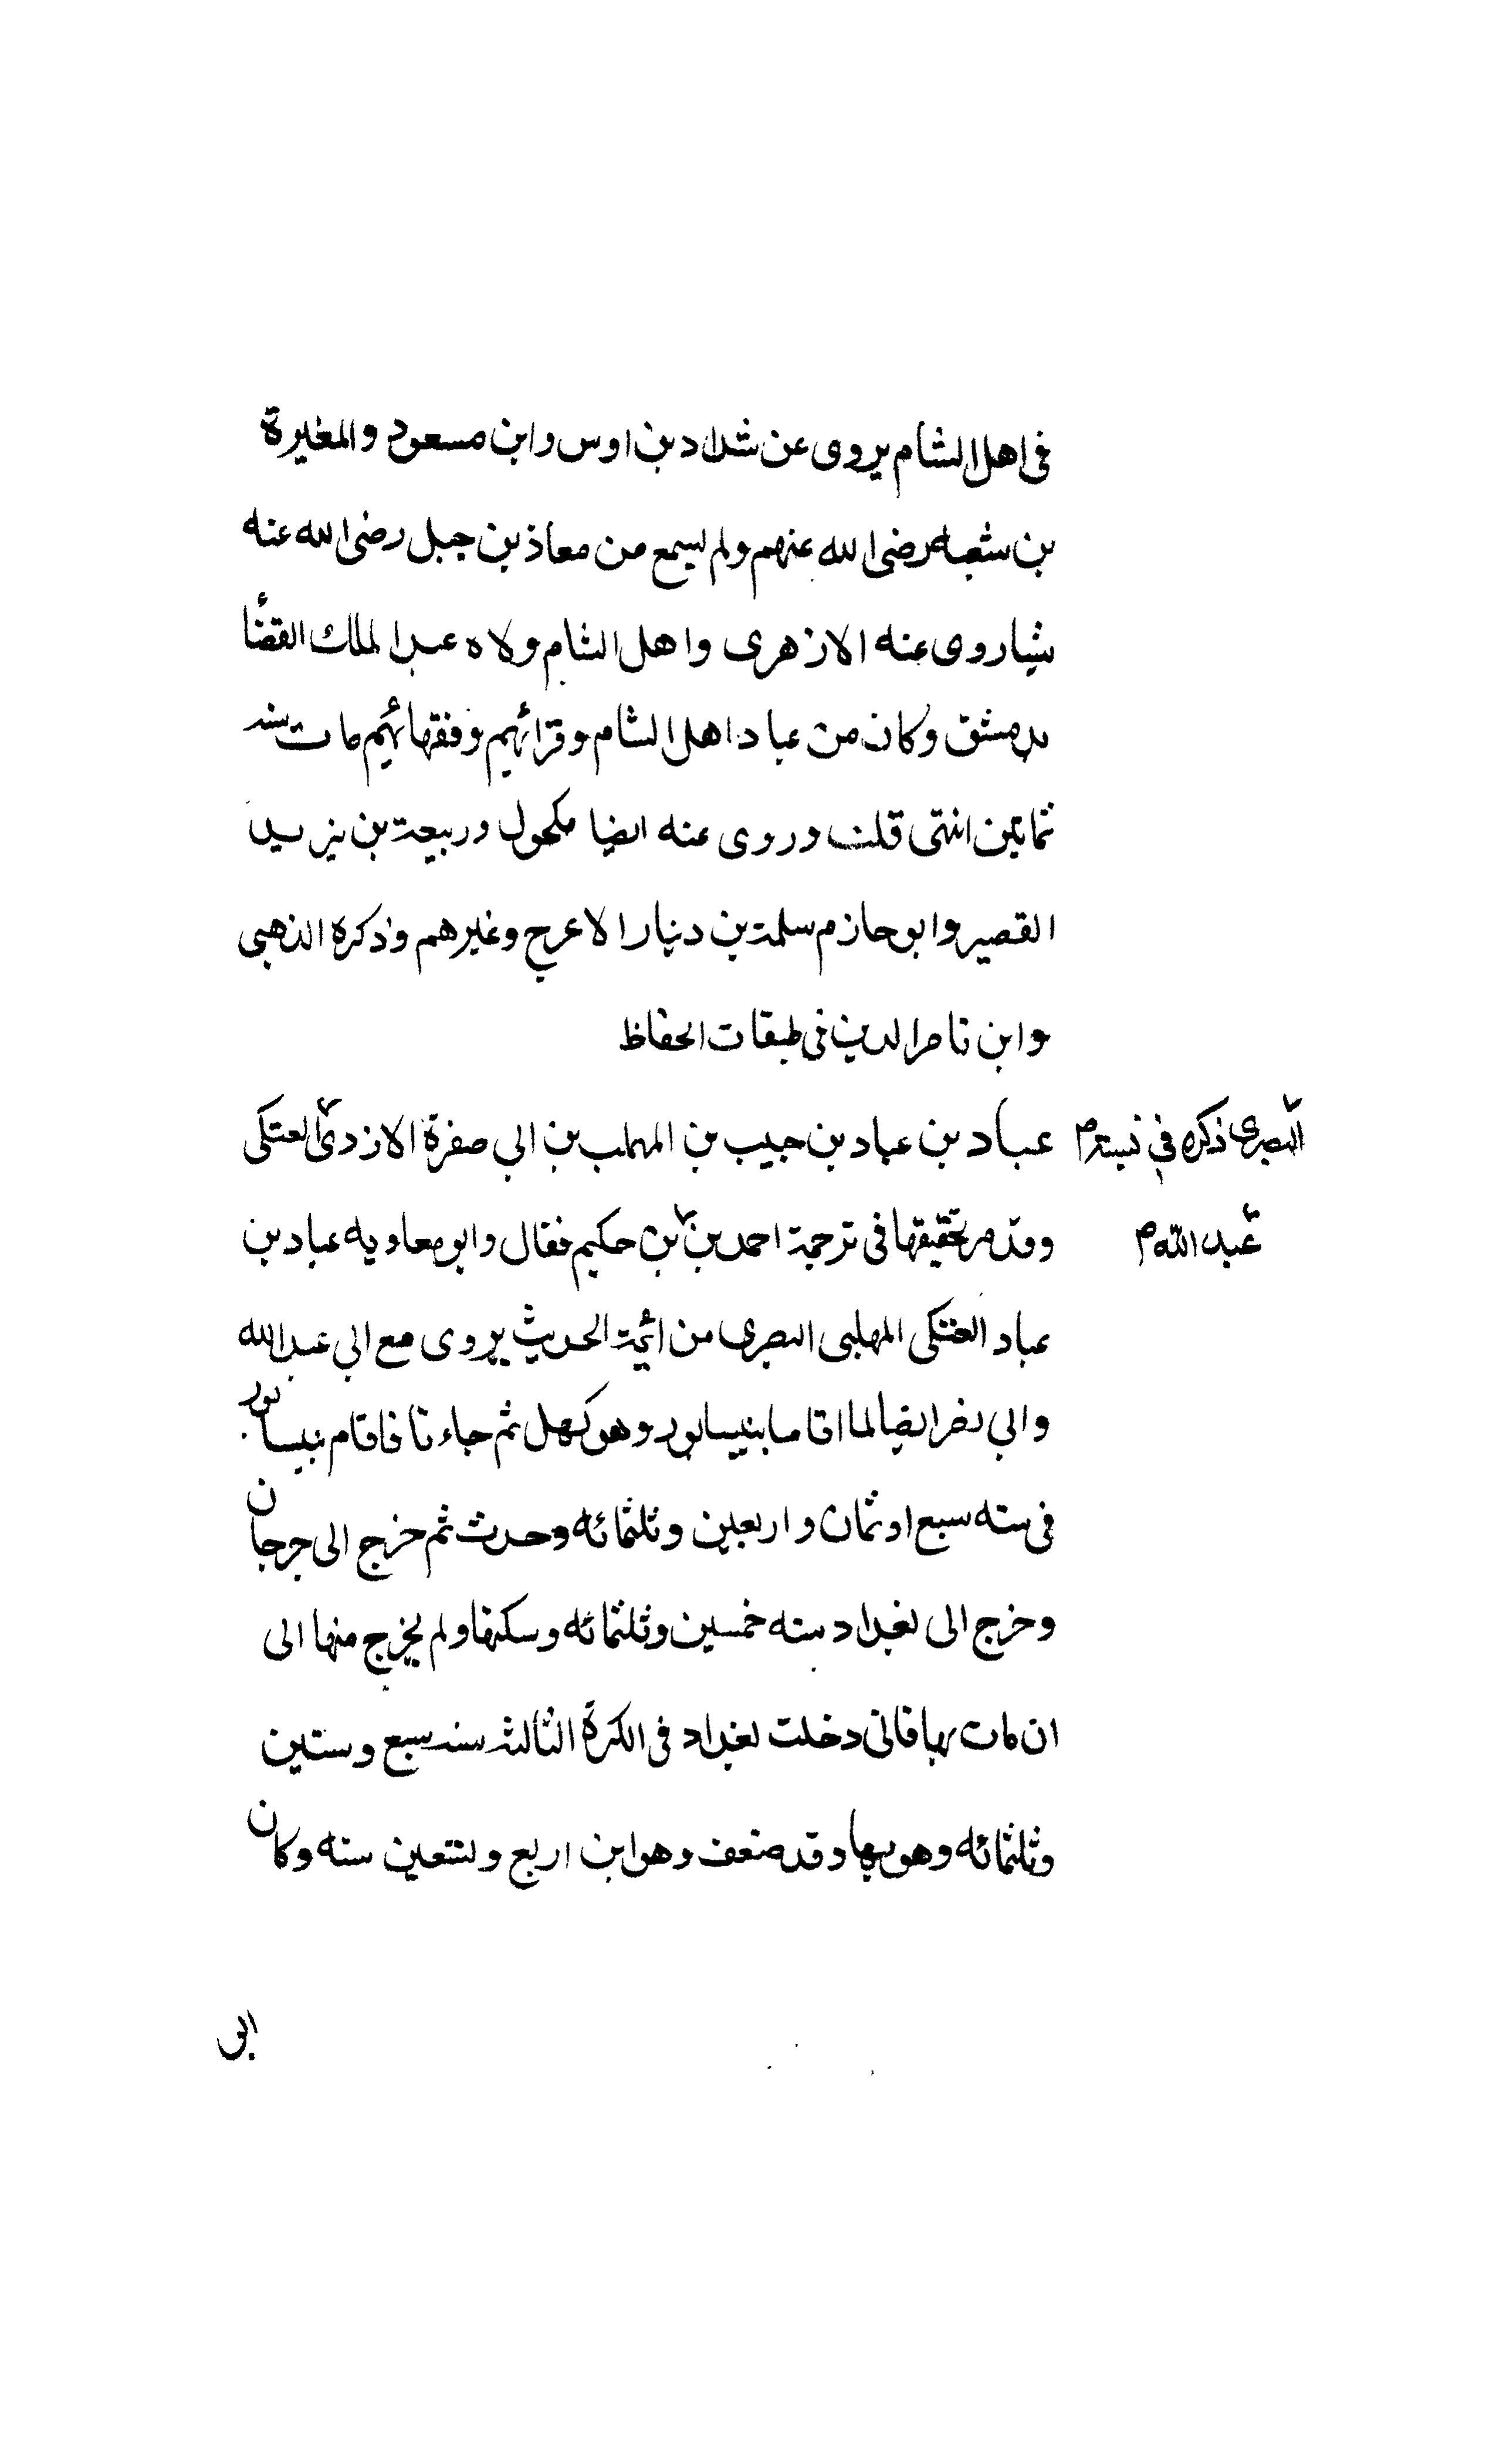 فى اهل الشام يروى عن شداد بن اوس وابن مسعود والمغيرة
بن شعبه رضى الله عنهم ولم يسمع من معاذ بن جبل رضى الله عنه
شيا روى عنه الازهرى واهل الشام ولاه عبد الملك القضأ
بدمشق وكان من عباد اهل الشام وقرائهم وفقهائهم مات سنه
ثمانين انتى قلت وروى عنه ايضا مكحول وربيعة بن يزيد
القصير وابو حازم سلمة بن دينار الاعرج وغيرهم وذكره الذهبى
وابن ناصر الدين فى طبقات الحفاظ
عباد بن عباد بن حبيب بن المهلب بن ابي صفرة الازدى العتكى
البصرى ذكره في نسبته م
وقد مر تحقيقها فى ترجمة احمد بن بن حكيم فقال وابو معاويه عباد بن
عبد الله م
عباد العتكى المهلبى البصرى من ائمة الحديث يروى مع ابي عبد الله
وابي نضر ايضا لما اقاما بنيسابور وهو كهل ثم جاءنا فاقام بنيسابور
فى سنه سبع او ثمان واربعين وثلثمائه وحدث ثم خرج الى جرجان
وخرج الى بغداد سنه خمسين وثلثمائه وسكنها ولم يخرج منها الى
ان مات بها فانى دخلت بغداد فى الكرة الثالثه سنه سبع وستين
وثلثمائه وهو بها وقد ضعف وهو ابن اربع وتسعين سنه وكان
ابو